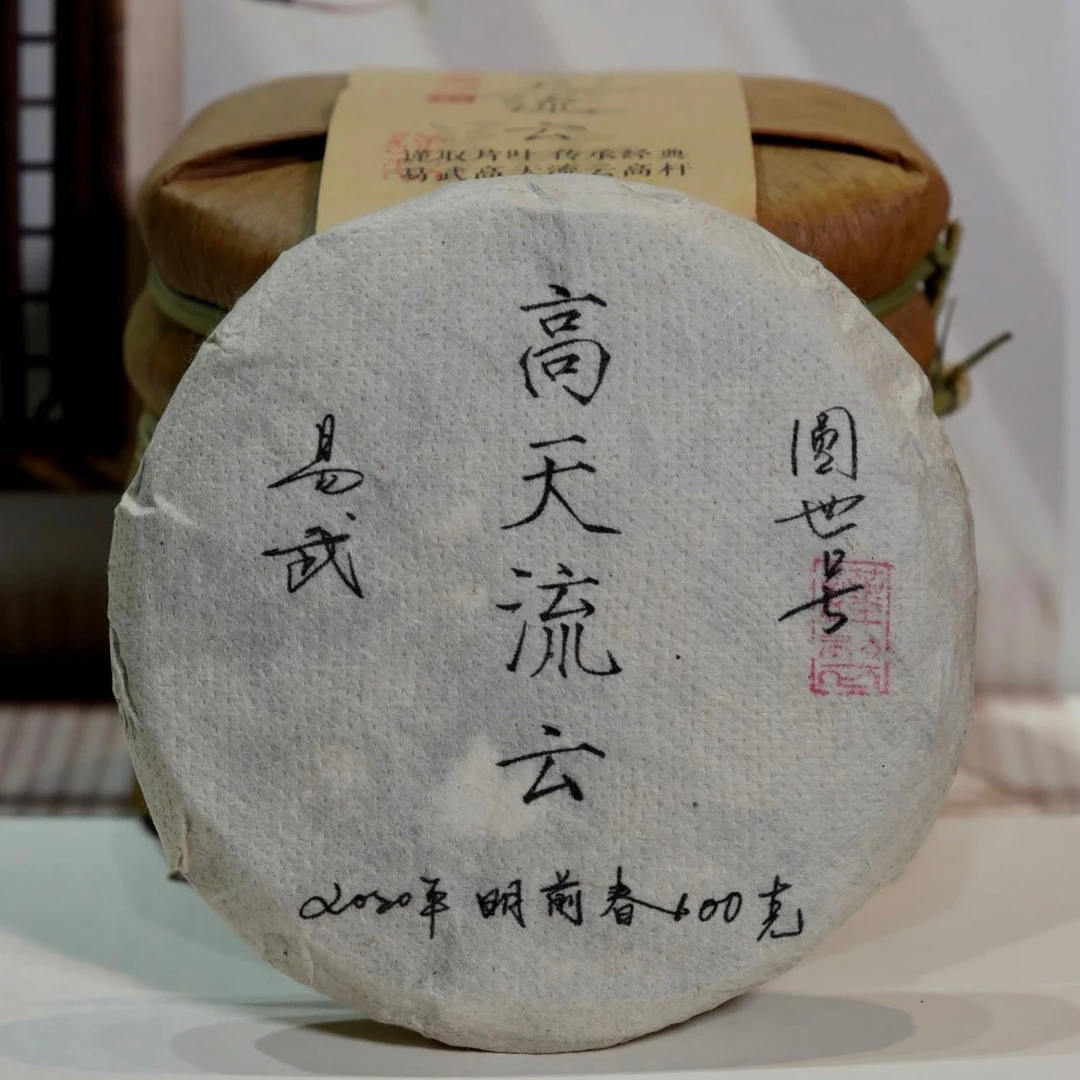 流
云
谨取片叶 传承经典
易武高天流云高杆
高天流云
易武
圆世号
2020年 明前春 600克